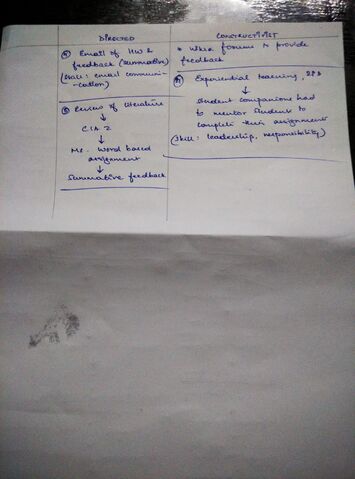 DIRECTED
④ Email of HW &
feedback (Summative)
(Skill: email communi-
-cation)
⑤ Review of literature
↓
CIA 2
↓
MS. Word based
assignment
↓
Summative feedback
CONSTRUCTIVIST
* Wikia forums to provide
feedback
Experiential learning,
↓
Student companions had
to mentor student to
complete their assignment
(Skill: leadership, responsibility)